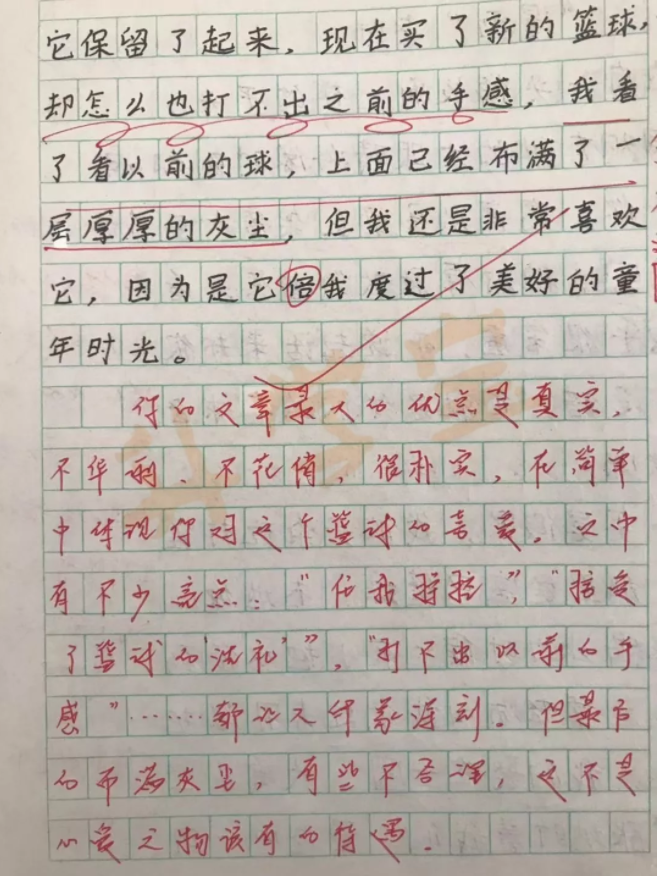 它保留了起来，现在买了新的篮球，
却怎么也打不出之前的手感，我看
了看以前的球，上面己经布满了一
层厚厚的灰尘，但我还是非常喜欢
它，因为是它倍我度过了美好的童
年时光。
你的文章最大的优点是真实，
不华丽、不花俏，很朴实，在简单
中体现你对这个篮球的喜爱。文中
有不少亮点："倍我
了篮球的'洗礼'"，"打不出以前的手
感"……都让人印象深刻。但最后
的布满灰尘，有些不合理，这不是
心爱之物该有的待遇.